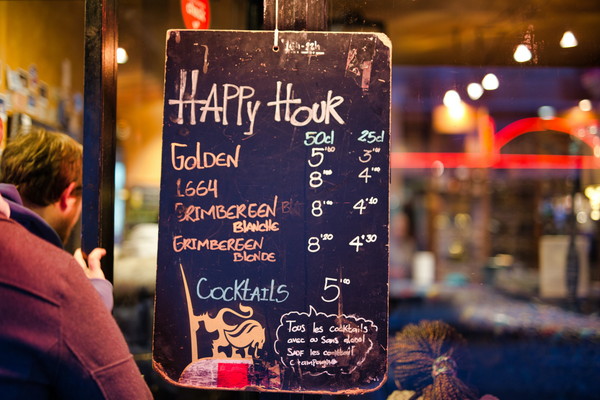 16h-22h
HAPPy HouR
50cl 25cl
GOLDEN 5'00 3'00
1664 8'00 4'00
GRIMBERGEN 8'00 4'10
Blanche
GRIMBERGEN 8'20 4'30
BLONDE
CocktAils 5'00
Tous les cocktails
avec ou Sans alcool
SAUF les cocktail
champagne